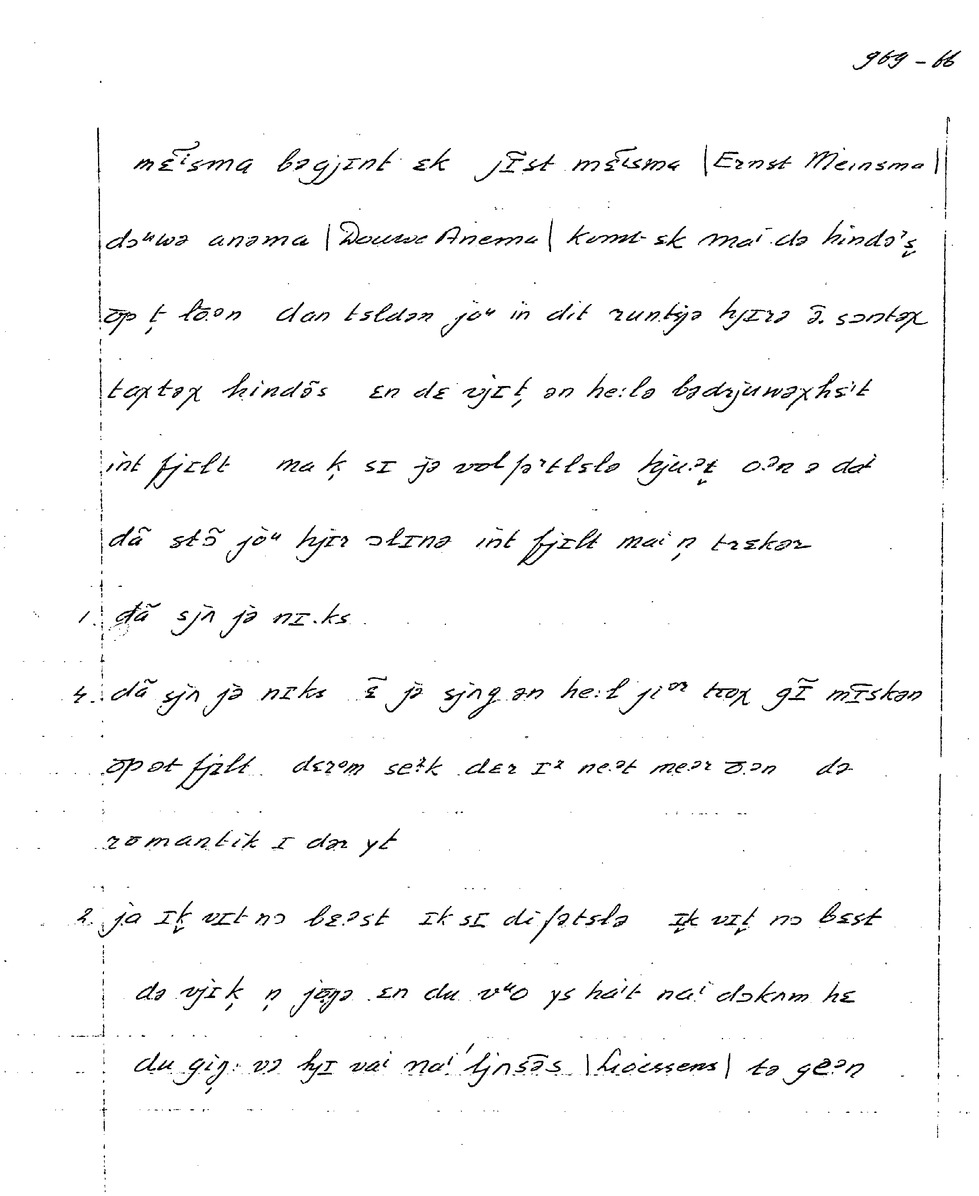 969-66
mɛ̃ⁱsma bəgjɪnt ɛk jɪ̃st mɛ̃ⁱsma |Ernst Meinsma|
dɔᵘwə anəma |Douwe Anema| komt ɛk mai də hində'ṣ
ōp ṭ lō.ən dan tɛldən jəᵘ in dit runtjə hjɪrə ã. sɔntəχ
taχtəχ hində̃s ɛn dɛ vjɪṭ ən he:lə bədrjuwəχhɛit
int fjɪlt ma ḳ sɪ jə hjuəṭ o.ən ə dɑt
dã stɔ̃ jəᵘ hjɪr ɔlɪnə int fjɪlt mai ṇ trɛkər
1. dã sjn jə nɪ.ks
4. dã sjn jə nɪks ɛ̃ jə sjng ən he:l jiər trəχ gɪ̃ mɪ̃skən
ōpət fjɪlt dɛrəm se.k dɛr ɪz neət meər ō.ən də
romantik ɪ dər yt
2. ja ɪḳ vɪt nɔ bɛ.əst ɪk sɪ di fətɛlə ɪḳ vɪṭ nɔ bɛst
də vjɪ ḳ ṇ jōŋə ɛn du vᵘo ys hait nai dɔkəm hɛ
du giŋ. və hjɪ vai nai ljnsə̃s tə geən